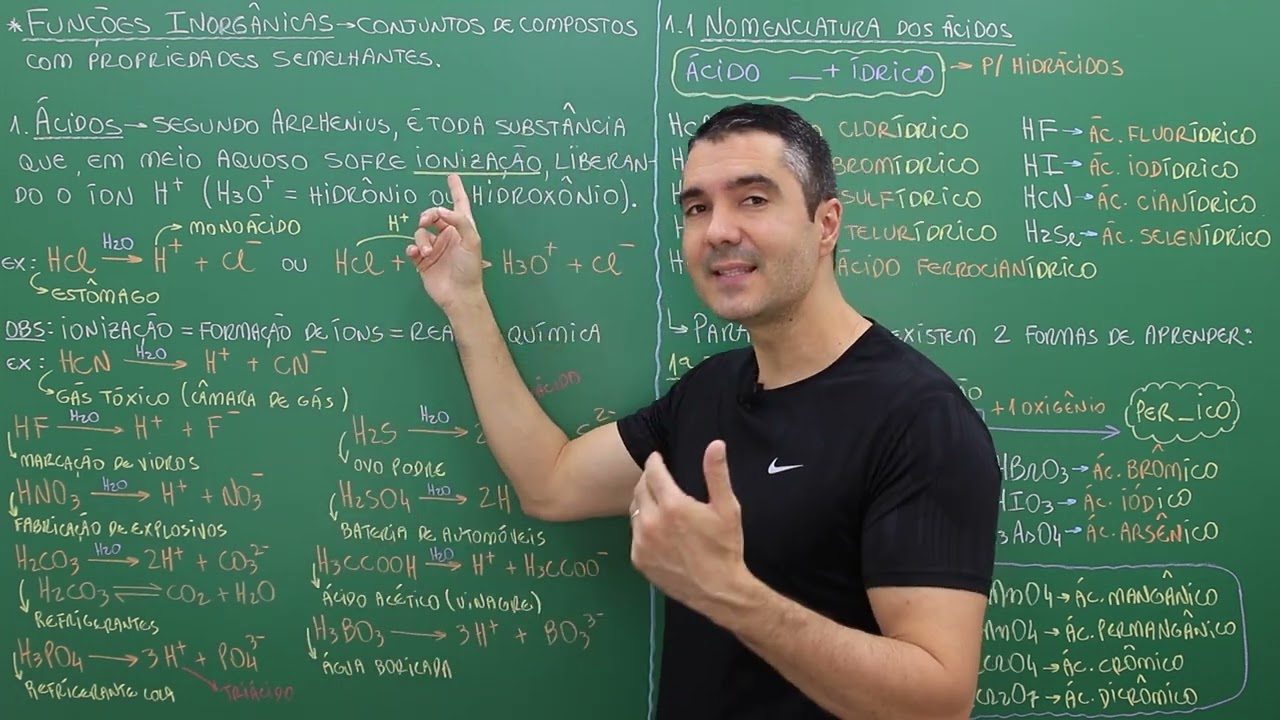 *FUNÇÕES INORGÂNICAS→CONJUNTOS DE COMPOSTOS
COM PROPRIEDADES SEMELHANTES.
1. ÁCIDOS→SEGUNDO ARRHENIUS, É TODA SUBSTÂNCIA
QUE, EM MEIO AQUOSO SOFRE IONIZAÇÃO, LIBERAN-
DO O ÍON H⁺ (H3O⁺ = HIDRÔNIO OU HIDROXÔNIO).
→MONOÁCIDO
H⁺
EX: HCl —H2O→ H⁺ + Cl⁻ OU HCl + → H3O⁺ + Cl⁻
→ESTÔMAGO
OBS: IONIZAÇÃO = FORMAÇÃO DE ÍONS = QUÍMICA
EX: HCN —H2O→ H⁺ + CN⁻
→GÁS TÓXICO (CÂMARA DE GÁS)
HF —H2O→ H⁺ + F⁻
MARCAÇÃO DE VIDROS
HNO3 —H2O→ H⁺ + NO3⁻
FABRICAÇÃO DE EXPLOSIVOS
H2CO3 —H2O→ 2H⁺ + CO3²⁻
H2CO3 ⇌ CO2 + H2O
REFRIGERANTES
H3PO4 → 3H⁺ + PO4³⁻
REFRIGERANTE COLA
TRIÁCIDO
H2S —H2O→ 2-
OVO PODRE
H2SO4 —H2O→ 2H
BATERIA DE AUTOMÓVEIS
H3CCOOH —H2O→ H⁺ + H3CCOO⁻
ÁCIDO ACÉTICO (VINAGRE)
H3BO3 → 3H⁺ + BO3³⁻
ÁGUA BORICADA
1.1 NOMENCLATURA DOS ÁCIDOS
ÁCIDO __+ ÍDRICO → P/ HIDRÁCIDOS
CLORÍDRICO
BROMÍDRICO
SULFÍDRICO
TELURÍDRICO
ÁCIDO FERROCIANÍDRICO
HF→ÁC. FLUORÍDRICO
HI→ÁC. IODÍDRICO
HCN→ÁC. CIANÍDRICO
H2Se→ÁC. SELENÍDRICO
EXISTEM 2 FORMAS DE APRENDER:
1ª
+1 OXIGÊNIO
PER_ICO
HBrO3→ÁC. BRÔMICO
HIO3→ÁC. IÓDICO
3AsO4→ÁC. ARSÊNICO
MnO4→ÁC. MANGÂNICO
MnO4→ÁC. PERMANGÂNICO
CrO4→ÁC. CRÔMICO
Cr2O7→ÁC. DICRÔMICO